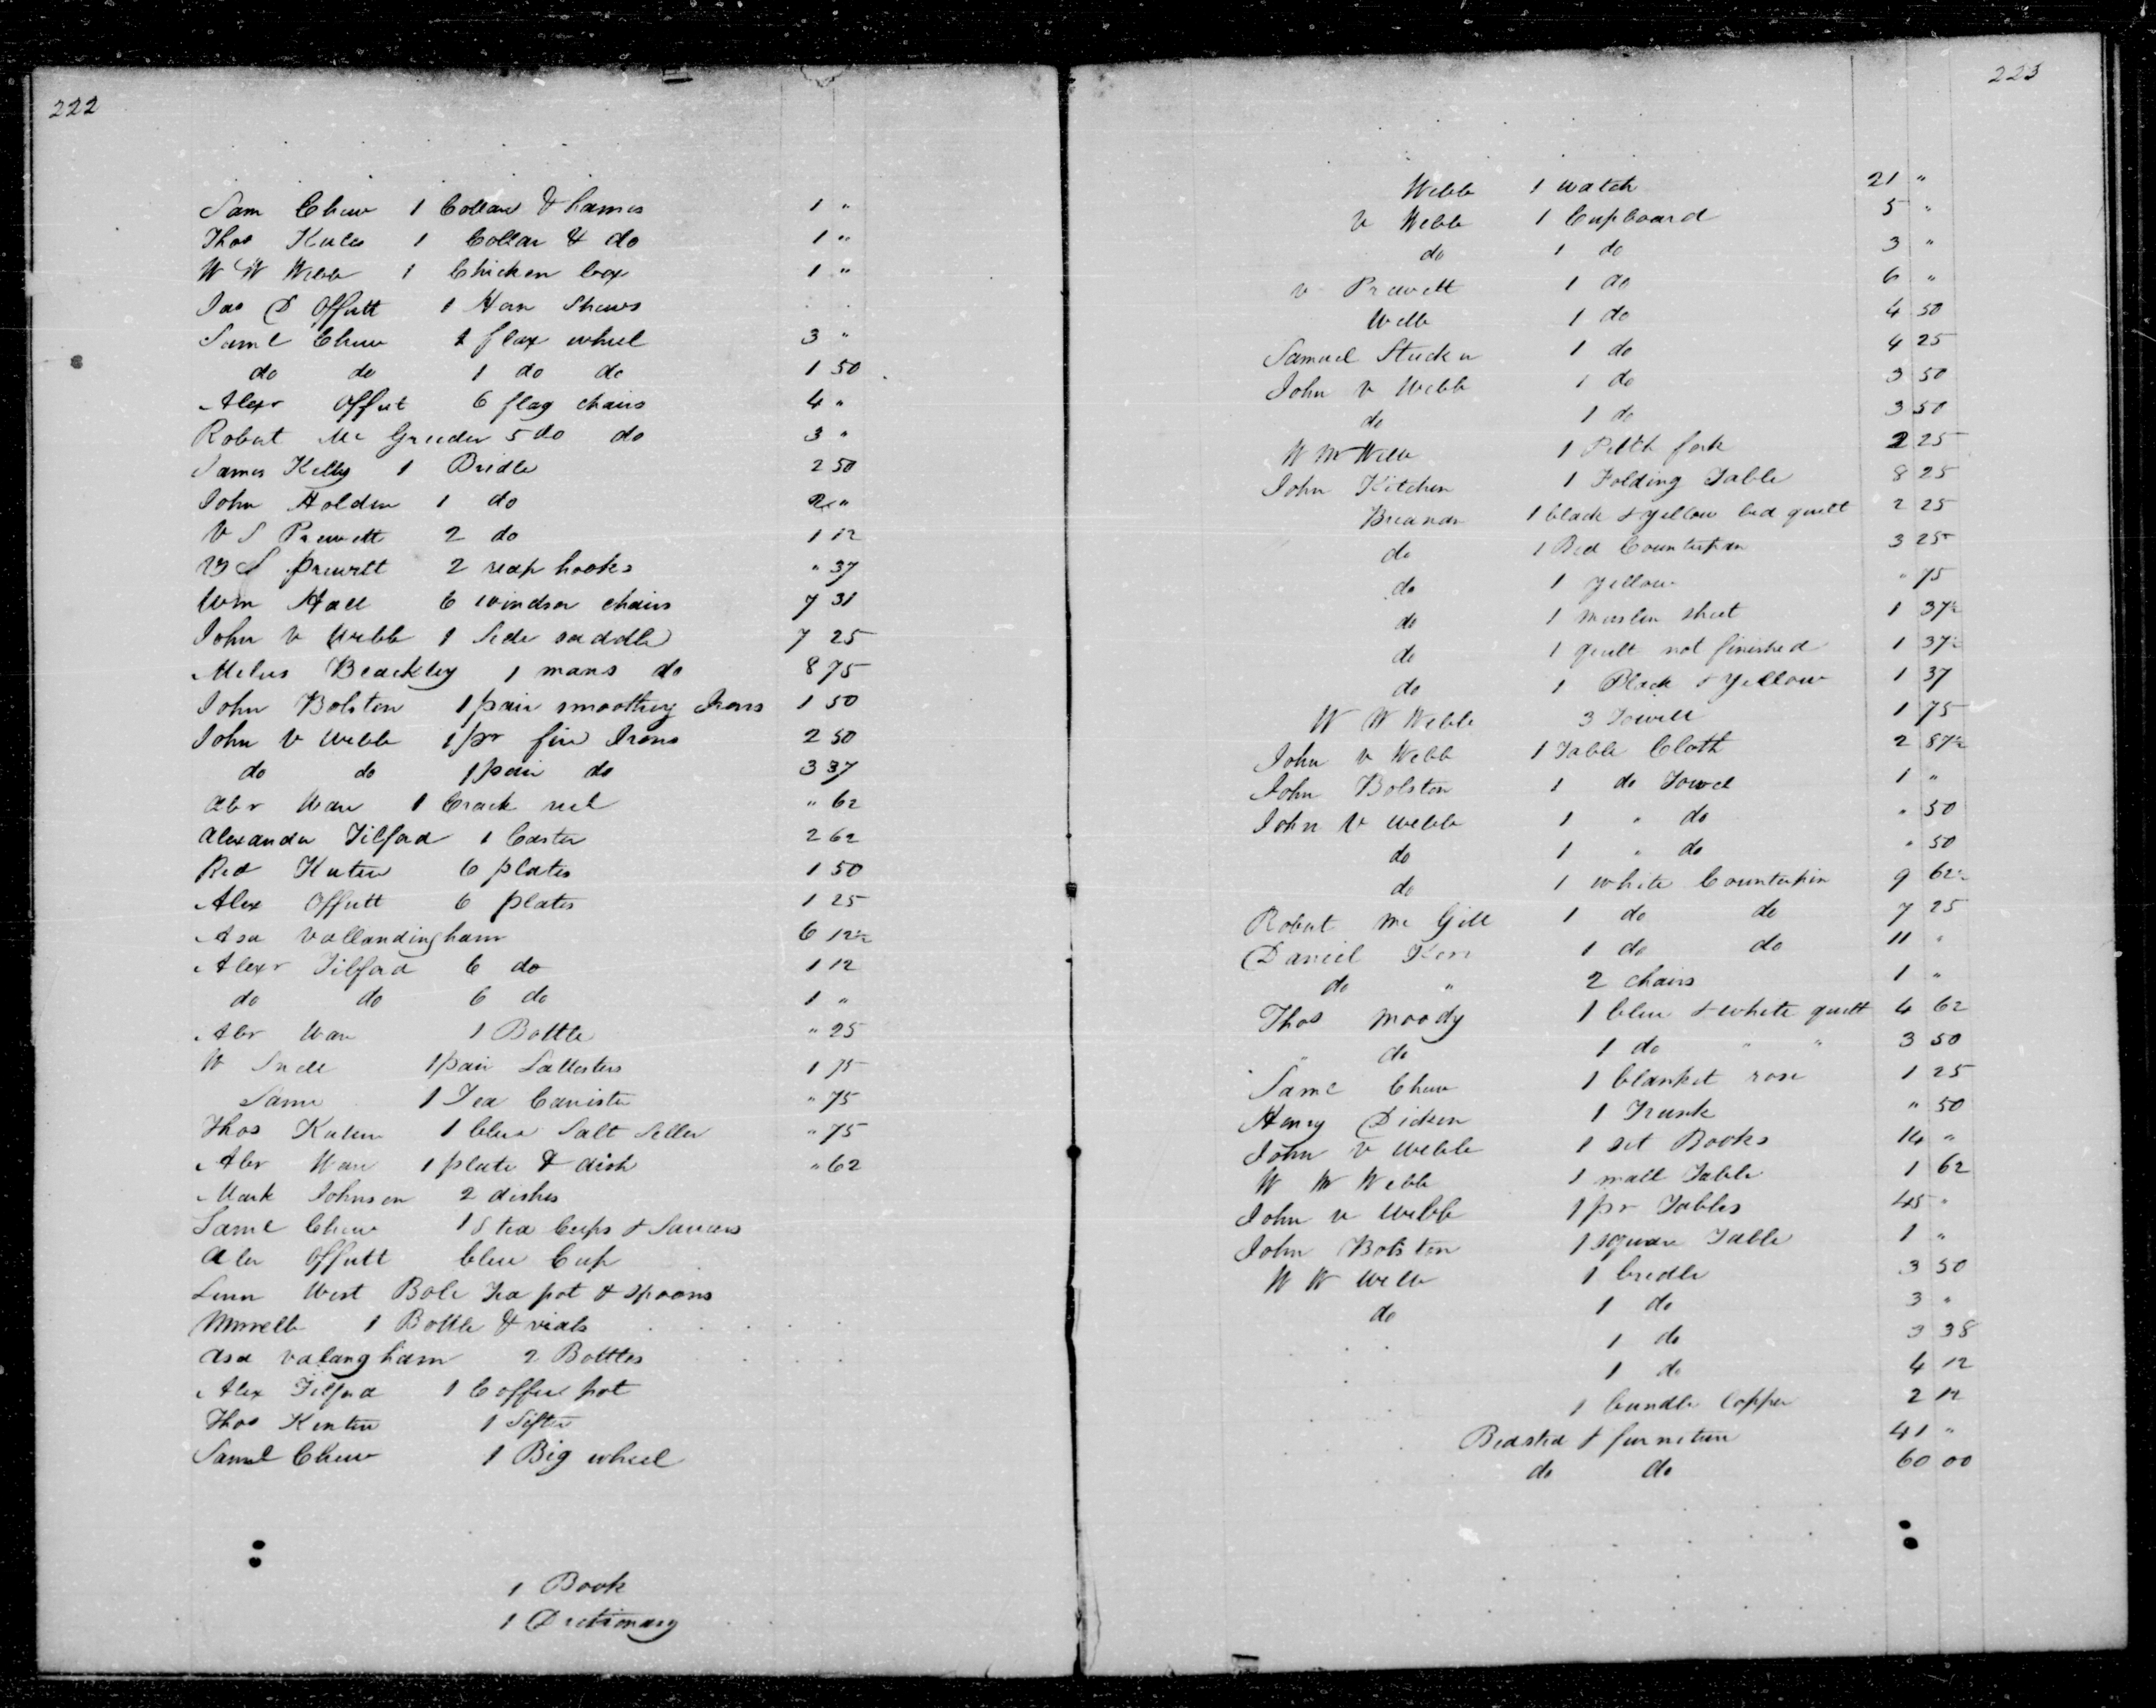 222
Sam Chew 1 Collar & hames 1 "
Thos 1 Collar & do 1 "
W W Webb 1 Chicken box 1 "
Jas D Offutt 1 Shears
Saml Chew 1 flax wheel 3 "
do do 1 do do 1 50
Alexr Offut 6 flag chairs 4 "
Robert Mc Gruder 5 do do 3 "
James Kelly 1 Bridle 2 50
John Holden 1 do 2 "
V S Prewett 2 do 1 12
V S Prewett 2 reap hooks " 37
Wm Hall 6 windsor chairs 7 31
John v Webb 1 Side saddle 7 25
Milus Blackley 1 mans do 8 75
John Bolston 1 pair smoothing Irons 1 50
John v Webb 1 pr fire Irons 2 50
do do 1 pair do 3 37
Abr Ware 1 Crack reel " 62
Alexander Tilford 1 Caster 2 62
6 plates 1 50
Alex Offutt 6 plates 1 25
Asa Vallandingham 6 12½
Alexr Tilford 6 do 1 12
do do 6 do 1 "
Abr Ware 1 Bottle " 25
W Snell 1 pair 1 75
Same 1 Tea Canister " 75
Thos 1 blue Salt Seller " 75
Abr Ware 1 plate & dish " 62
Mark Johnson 2 dishes
Saml Chew tea Cups & Saucers
Alex Offutt blue Cup
West Bole Tea pot & Spoons
1 Bottle & vials
Asa Valangham 2 Bottles
Alex Tilford 1 Coffee pot
Thos 1 Sifter
Saml Chew 1 Big wheel
1 Book
1 Dictionary
223
Webb 1 watch 21 "
v Webb 1 Cupboard 5 "
do 1 do 3 "
v Prewett 1 do 6 "
Webb 1 do 4 50
Samuel Stucker 1 do 4 25
John v Webb 1 do 3 50
do 1 do 3 50
W W Webb 1 fork 2 25
John Kitchen 1 Folding Table 8 25
1 black & yellow bed quilt 2 25
do 1 Bed Counterpin 3 25
do 1 yellow " 75
do 1 muslin sheet 1 37½
do 1 quilt not finished 1 37½
do 1 Black & yellow 1 37
W W Webb 3 Towell 1 75
John v Webb 1 Table Cloth 2 87½
John Bolston 1 do Towel 1 "
John v Webb 1 " do " 50
do 1 " do " 50
do 1 white Counterpin 9 62½
Robert Mc Gill 1 do do 7 25
Daniel 1 do do 11 "
do " 2 chairs 1 "
Thos Moody 1 blue & white quilt 4 62
do 1 do " " 3 50
Saml Chew 1 blanket rose 1 25
Henry Dicken 1 Trunk " 50
John v Webb 1 set Books 14 "
W W Webb 1 mall Table 1 62
John v Webb 1 pr Tables 45 "
John Bolston 1 square Table 1 "
W W Webb 1 bridle 3 50
do 1 do 3 "
1 do 3 38
1 do 4 12
1 bundle Copper 2 12
Bedsted & furniture 41 "
do do 60 00